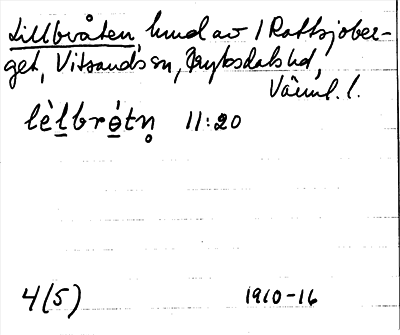 Lillbråten, hmd av 1 Rattsjöber-
get, Vitsands sn, Fryksdals hd,
Värml. l.
lèlbrötn̥ 11:20
4(5) 1910-16